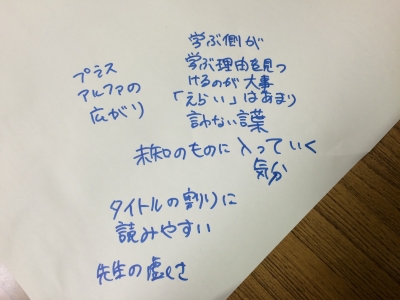 プラス
アルファの
広がり
学ぶ側が
学ぶ理由を見つ
けるのが大事
「えらい」はあまり
言わない言葉
未知のものに入っていく
気分
タイトルの割りに
読みやすい
先生の虚しさ